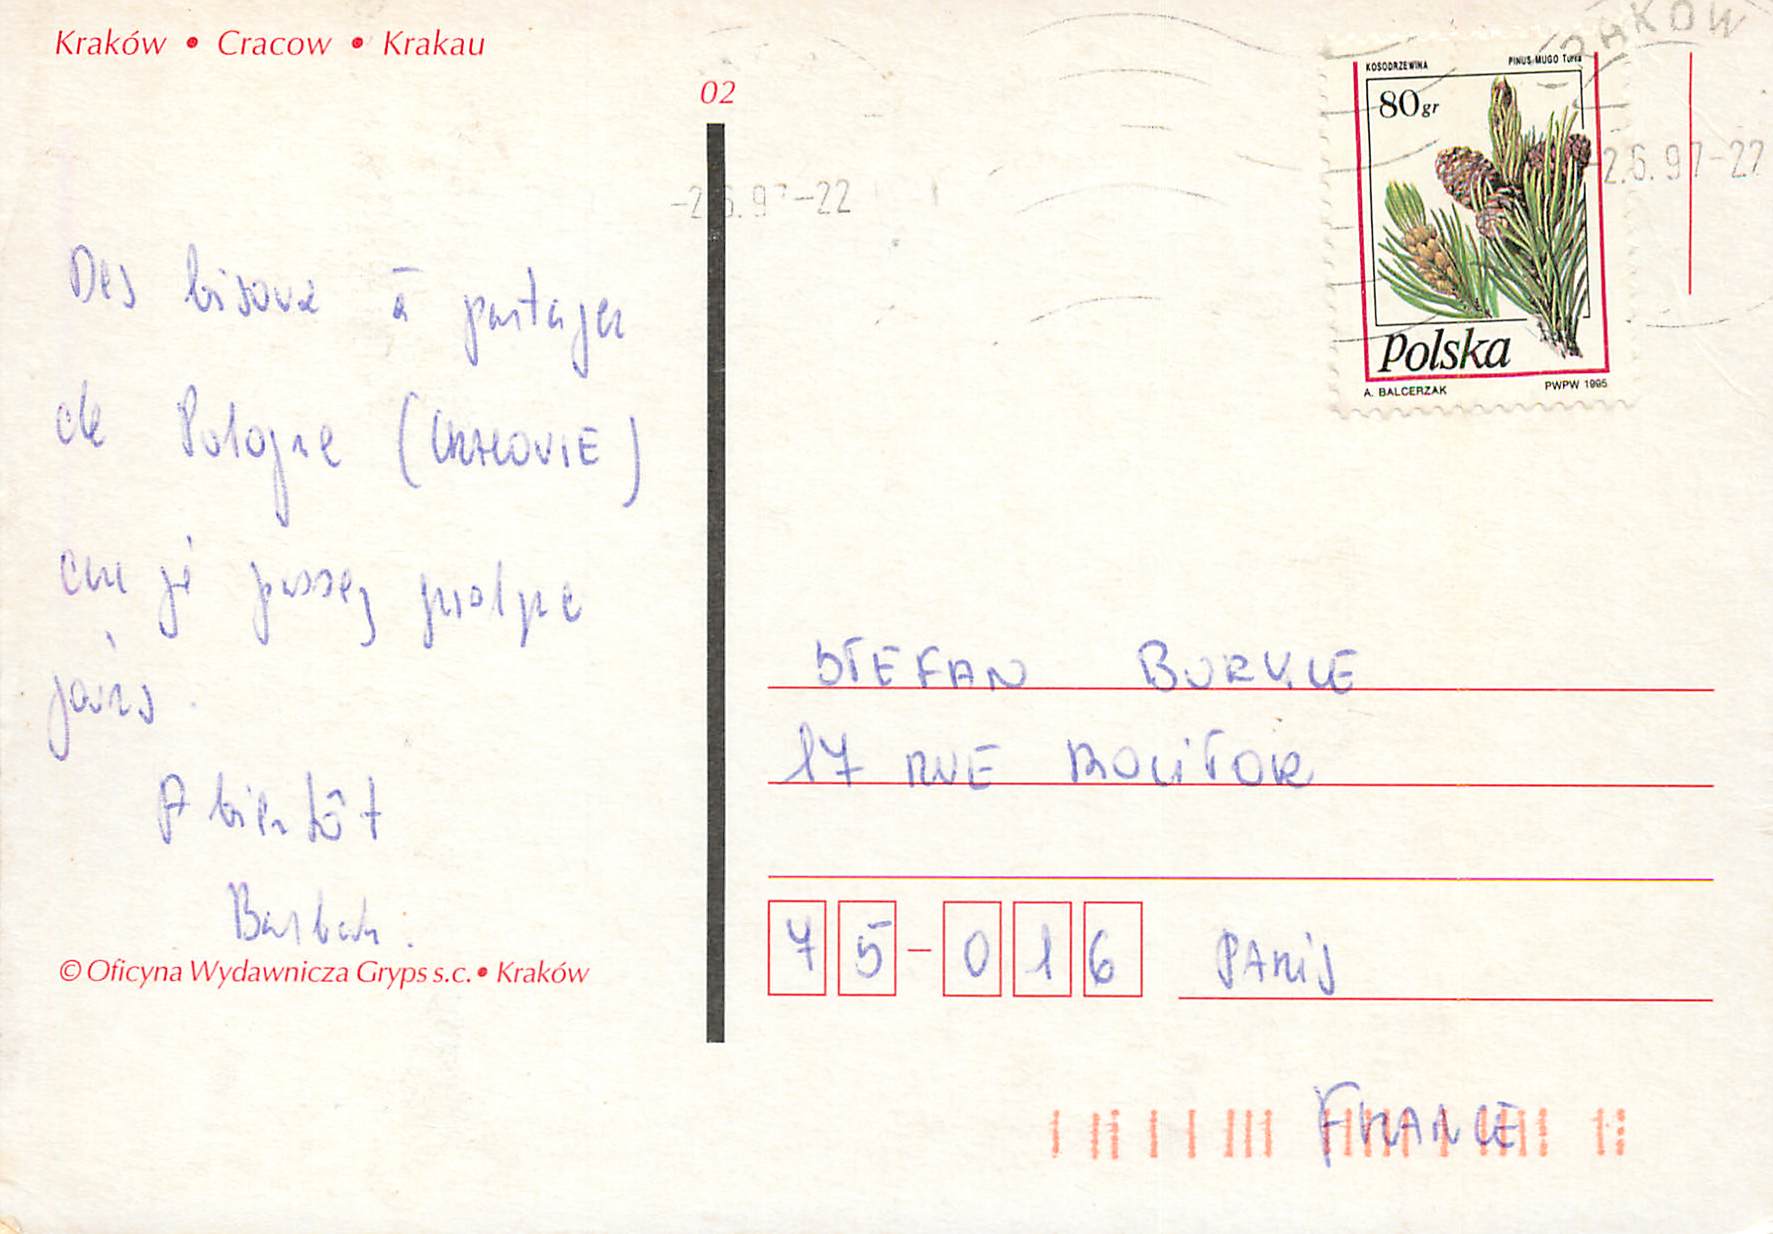 Kraków • Cracow • Krakau
02
KOSODRZEWINA
PINUS MUGO Turra
80gr
Polska
A. BALCERZAK
PWPW 1995
KRAKÓW
2.6.97-22
-2.6.97-22
Des bisoux à partager
de Pologne (CRACOVIE)
où je passe quelque
jours.
A bientôt
Barbara.
© Oficyna Wydawnicza Gryps s.c. • Kraków
STEFAN
17 RUE MOLITOR
75-016 PARIS
FRANCE